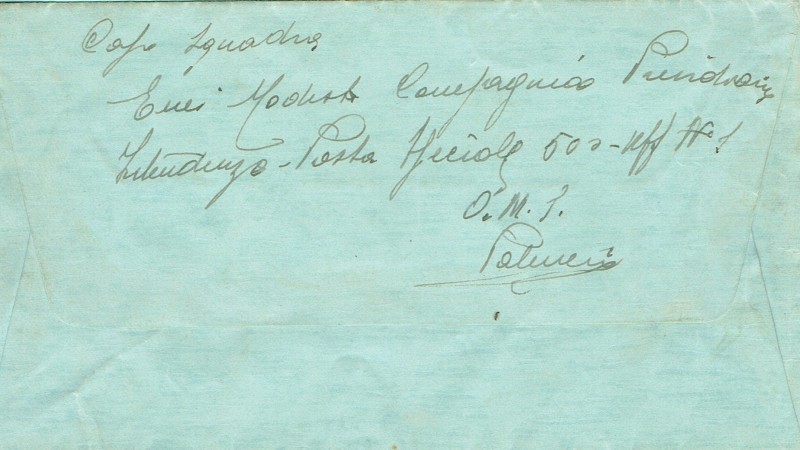 Capo Squadra
Enei Modesto Compagnia Presidiaria
Intendenza - Posta Speciale 500 - Uff N° 1
O. M. S.
Palmeri